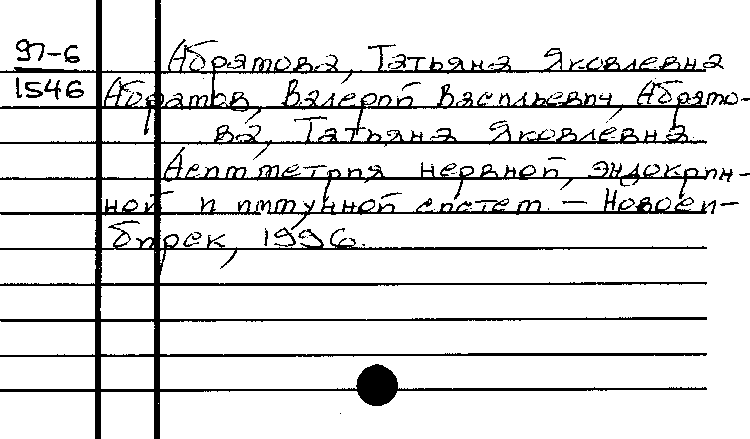 97-6
1546
Абрамова, Татьяна Яковлевна
Абрамов, Валерий Васильевич, Абрамо-
ва, Татьяна Яковлевна
Асимметрия нервной, эндокрин-
ной и иммунной систем. — Новоси-
бирск, 1996.